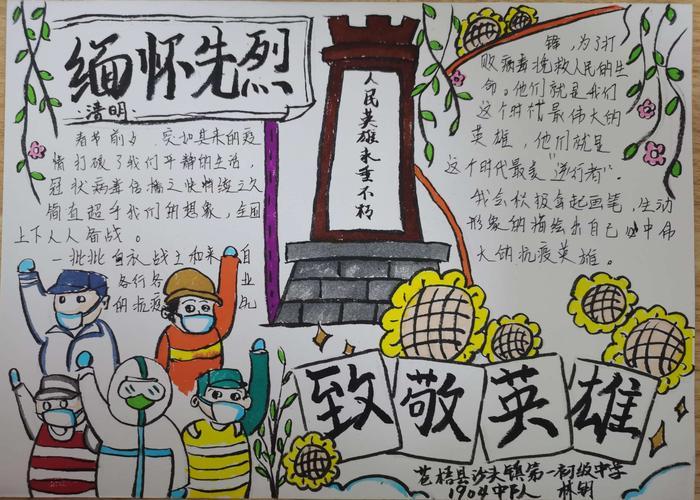 缅怀先烈
清明:
春节前夕，突如其来的疫
情打破了我们平静的生活，
冠状病毒传播之快持续之久
简直超乎我们的想象，全国
上下人人备战。
一批批白衣战士和来自
各行各业
的抗疫
人民英雄永垂不朽
锋，为了打
败病毒挽救人民的生
命。他们就是我们
这个时代最伟大的
英雄，他们就是
这个时代最美"逆行者"。
我会积极拿起画笔，生动
形象的描绘出自己心中伟
大的抗疫英雄。
致敬英雄
苍梧县沙头镇第一初级中学
1904中队